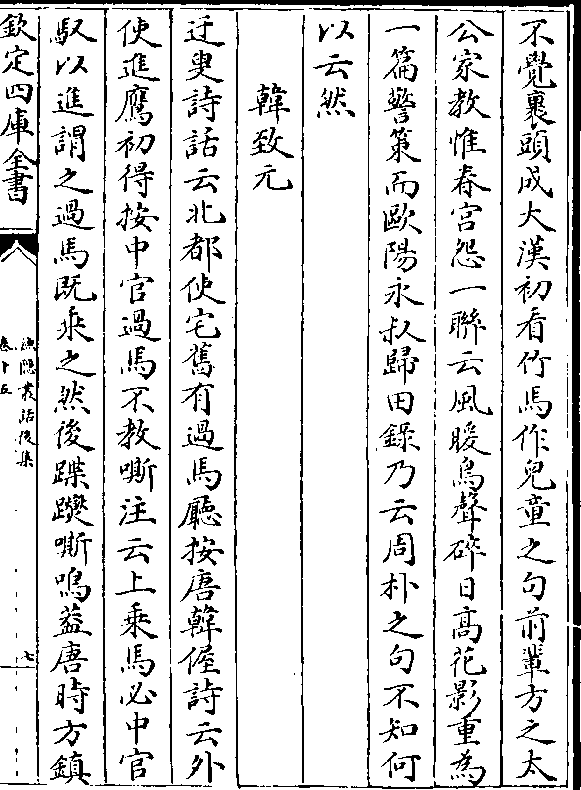 不覺裹頭成大漢初看竹馬作兒童之句前輩方之太
公家教惟春宮怨一聯云風暖鳥聲碎日高花影重為
一篇警策而歐陽永叔歸田錄乃云周朴之句不知何
以云然
韓致元
迂叟詩話云北都使宅舊有過馬廳按唐韓偓詩云外
使進鷹初得按中官過馬不教嘶注云上乗馬必中官
馭以進謂之過馬既乗之然後蹀躞嘶鳴葢唐時方鎮
欽定四庫全書
漁隱叢話後集
卷十五
七